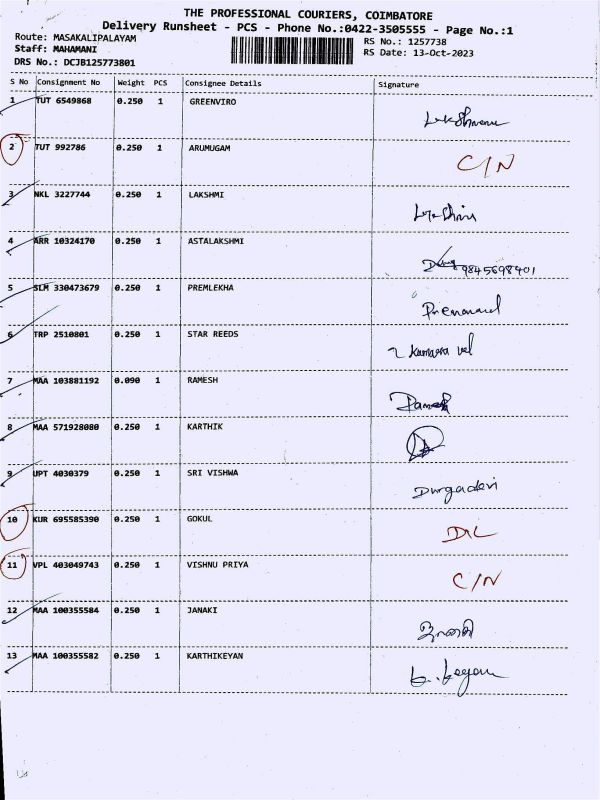 THE PROFESSIONAL COURIERS, COIMBATORE
Delivery Runsheet - PCS - Phone No.:0422-3505555 - Page No.:1
Route: MASAKALIPALAYAM
RS No.: 1257738
Staff: MAHAMANI
RS Date: 13-Oct-2023
DRS No.: DCJB125773801
S No Consignment No Weight PCS Consignee Details Signature
1 TUT 6549868 0.250 1 GREENVIRO
2 TUT 992786 0.250 1 ARUMUGAM C/N
3 NKL 3227744 0.250 1 LAKSHMI
4 ARR 10324170 0.250 1 ASTALAKSHMI 9845698401
5 SLM 330473679 0.250 1 PREMLEKHA Premanand
6 TRP 2510801 0.250 1 STAR REEDS Kumara vel
7 MAA 103881192 0.090 1 RAMESH Ramesh
8 MAA 571928080 0.250 1 KARTHIK
9 UPT 4030379 0.250 1 SRI VISHWA Durgadevi
10 KUR 695585390 0.250 1 GOKUL D/L
11 VPL 403049743 0.250 1 VISHNU PRIYA C/N
12 MAA 100355584 0.250 1 JANAKI ஜானகி
13 MAA 100355582 0.250 1 KARTHIKEYAN